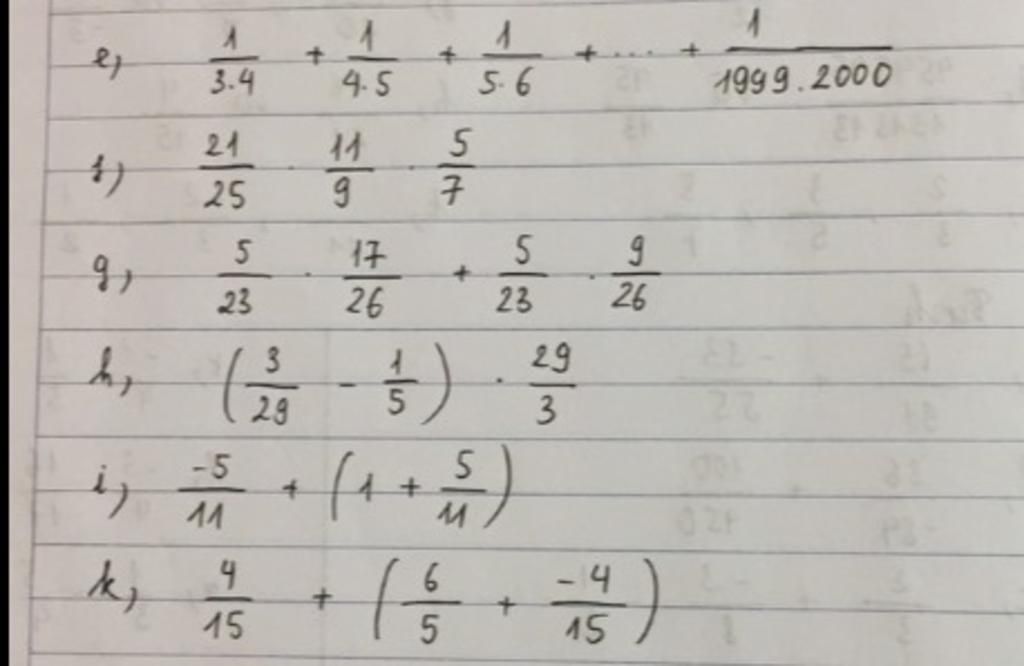 e, 1/3.4 + 1/4.5 + 1/5.6 + ... + 1/1999.2000
f) 21/25 . 11/9 . 5/7
g, 5/23 . 17/26 + 5/23 . 9/26
h, (3/29 - 1/5) . 29/3
i, -5/11 + (1 + 5/11)
k, 4/15 + (6/5 + -4/15)